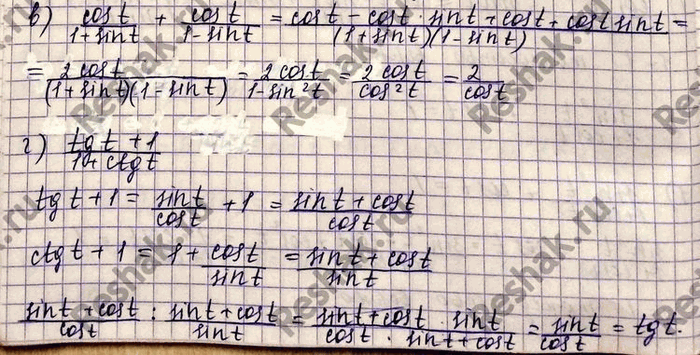 в) cost/(1+sint) + cost/(1-sint) = (cost - cost · sint + cost + cost sint)/((1+sint)(1-sint)) =
= 2cost/((1+sint)(1-sint)) = 2cost/(1-sin²t) = 2cost/cos²t = 2/cost
г) (tgt+1)/(1+ctgt)
tgt+1 = sint/cost + 1 = (sint+cost)/cost
ctgt+1 = 1 + cost/sint = (sint+cost)/sint
(sint+cost)/cost : (sint+cost)/sint = (sint+cost · sint)/(cost · sint+cost) = sint/cost = tgt.
Reshak.ru